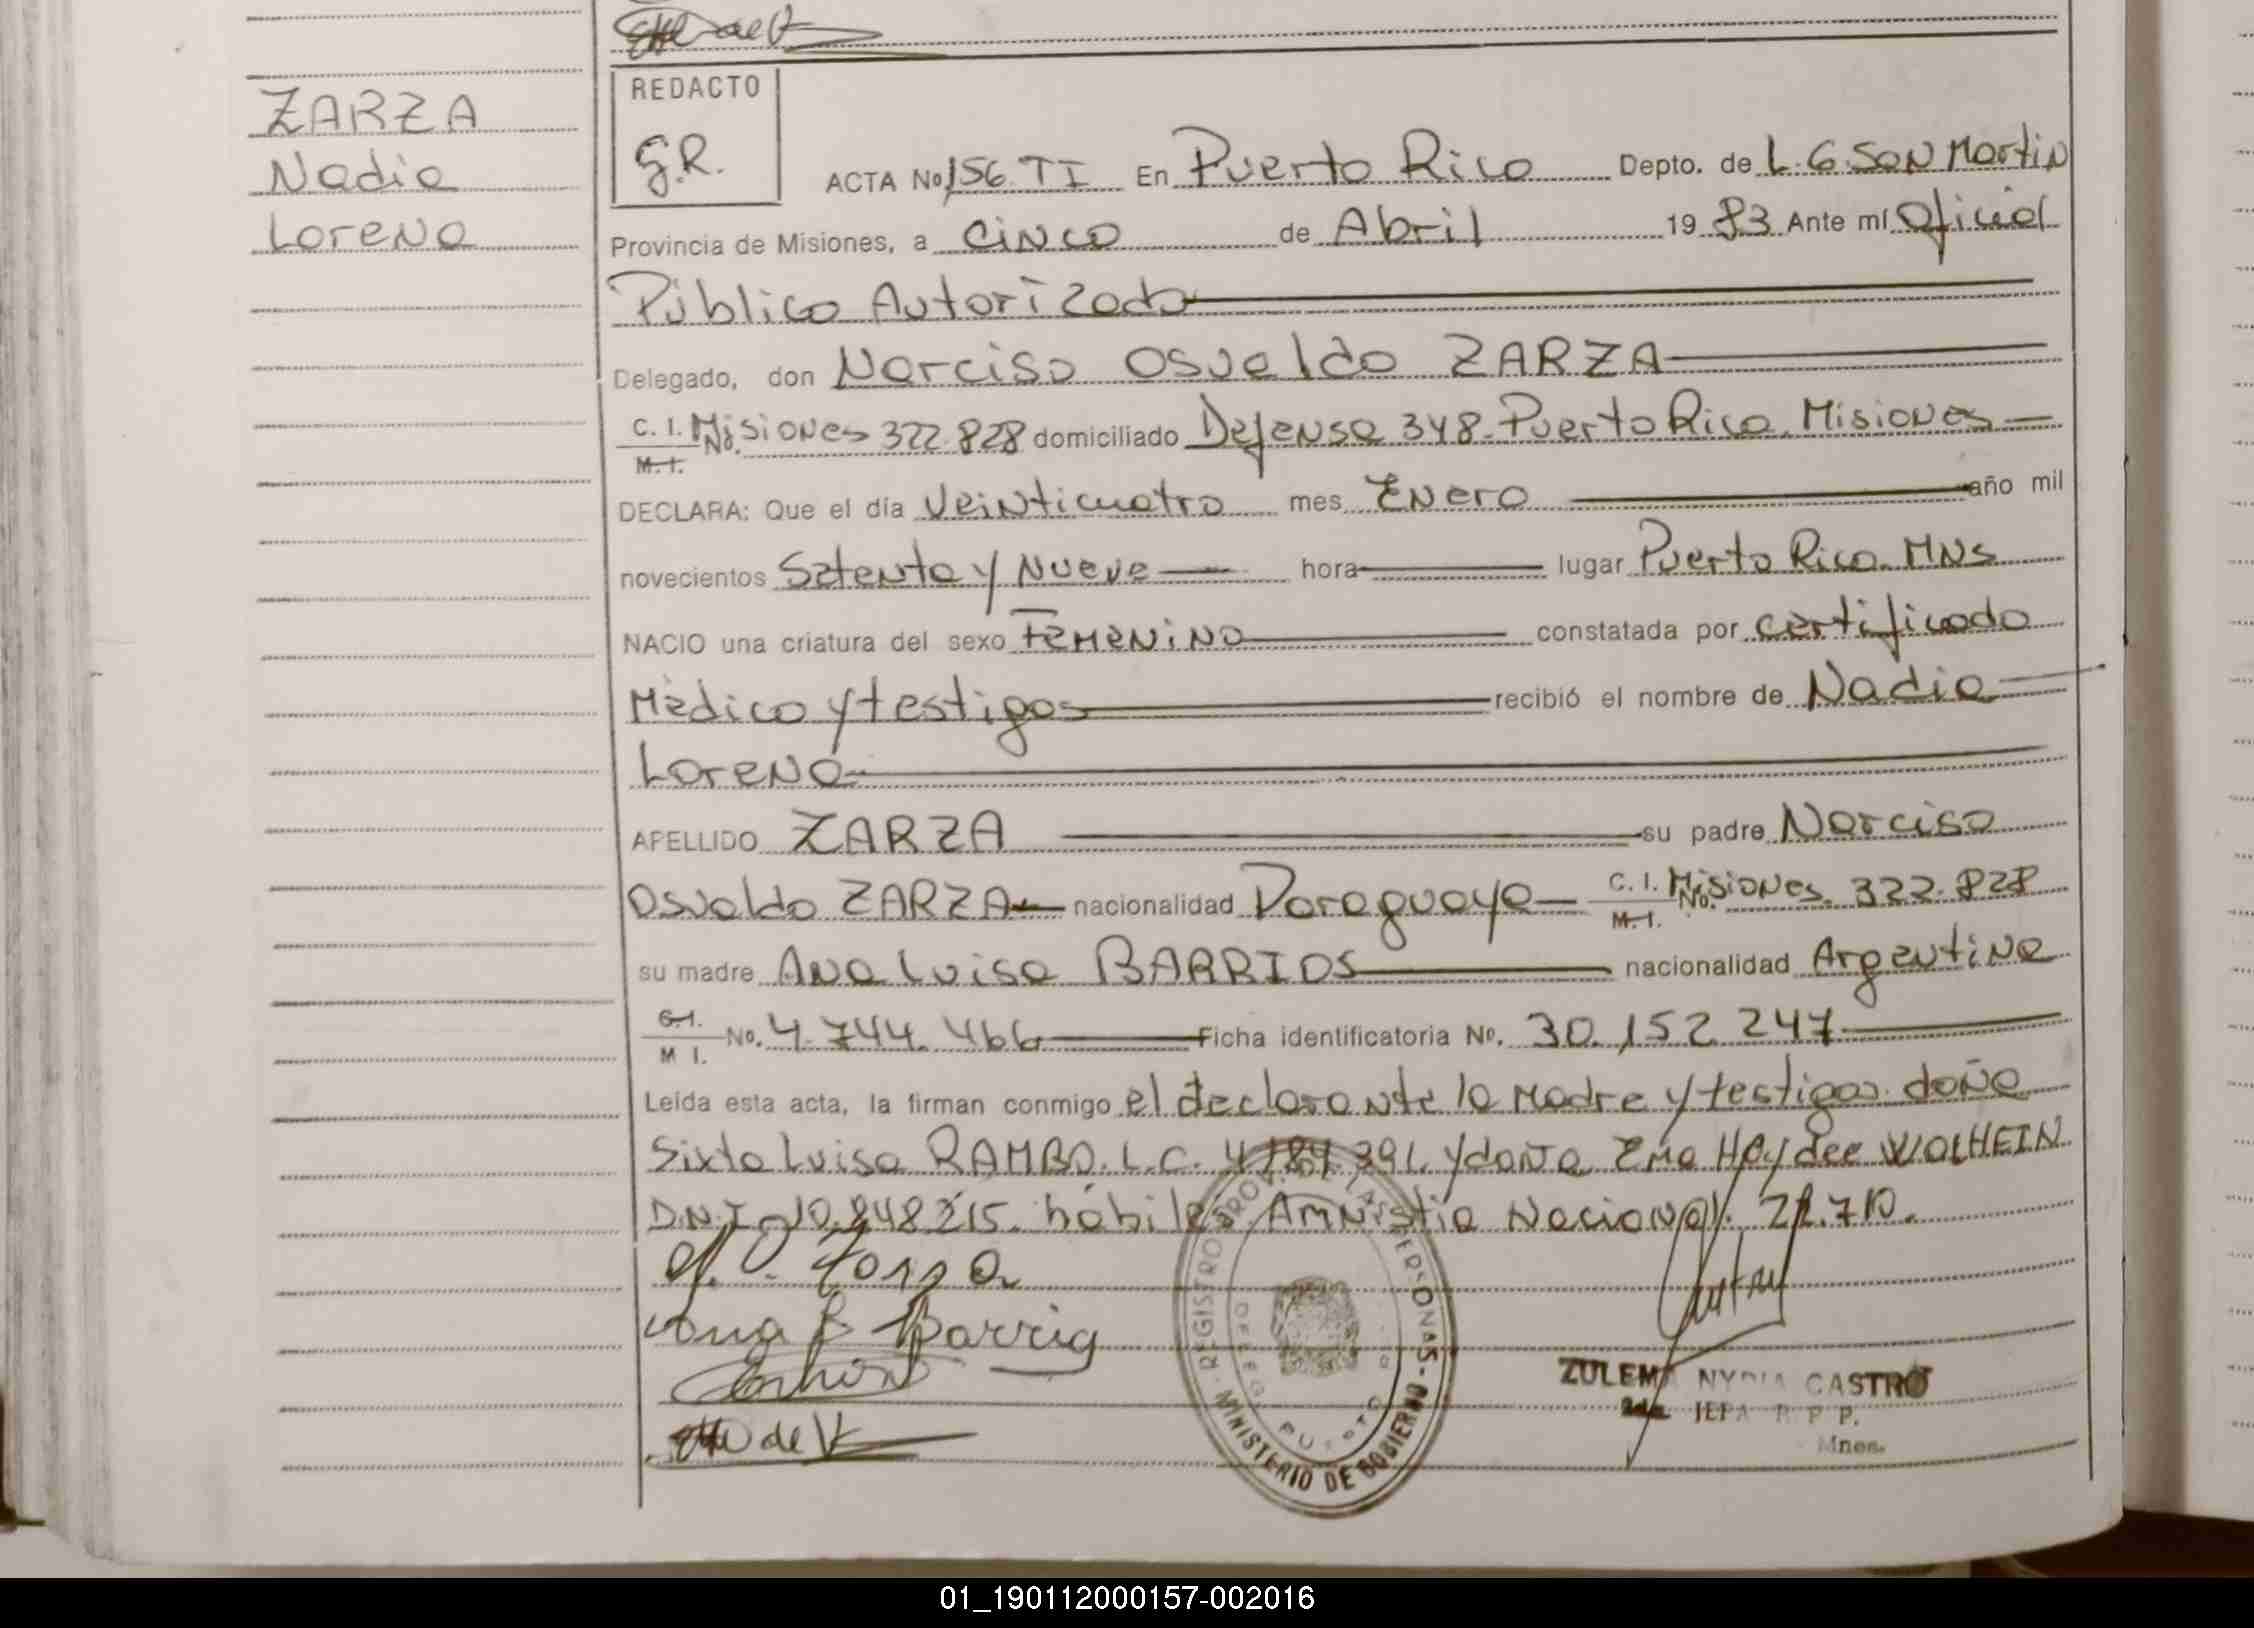 ZARZA
Nadia
Lorena
REDACTO
G.R.
ACTA No 156. TI En Puerto Rico Depto. de L. G. San Martin
Provincia de Misiones, a cinco de Abril 19 83 Ante mí Oficial
Público Autorizado
Delegado, don Narciso Osvaldo ZARZA
C. I. M. I. No. Misiones 322.828 domiciliado Defensa 348. Puerto Rico. Misiones
DECLARA: Que el día Veinticuatro mes Enero año mil
novecientos Setenta y Nueve hora lugar Puerto Rico. MNS
NACIO una criatura del sexo Femenino constatada por certificado
Mèdico y testigos recibió el nombre de Nadia
Lorena
APELLIDO ZARZA su padre Narciso
Osvaldo ZARZA nacionalidad Paraguaya C. I. M. I. No. Misiones. 322.828
su madre Ana Luisa BARRIOS nacionalidad Argentina
C. I. M I. No. 4.744.466 Ficha identificatoria No. 30.152.247
Leída esta acta, la firman conmigo el declarante la Madre y testigos doña
Sixta Luisa RAMBO. L.C. 4.184.391. y doña Ema Haydee WOLHEIN
D.N.I. 10.848.215. hábiles Amnistía Nacional. 21.710.
Ana L Barrios
REGISTRO PROV. DE LAS PERSONAS
MINISTERIO DE GOBIERNO
PUERTO
ZULEMA NYDIA CASTRO
2da JEFA R P P.
Mnes.
01_190112000157-002016